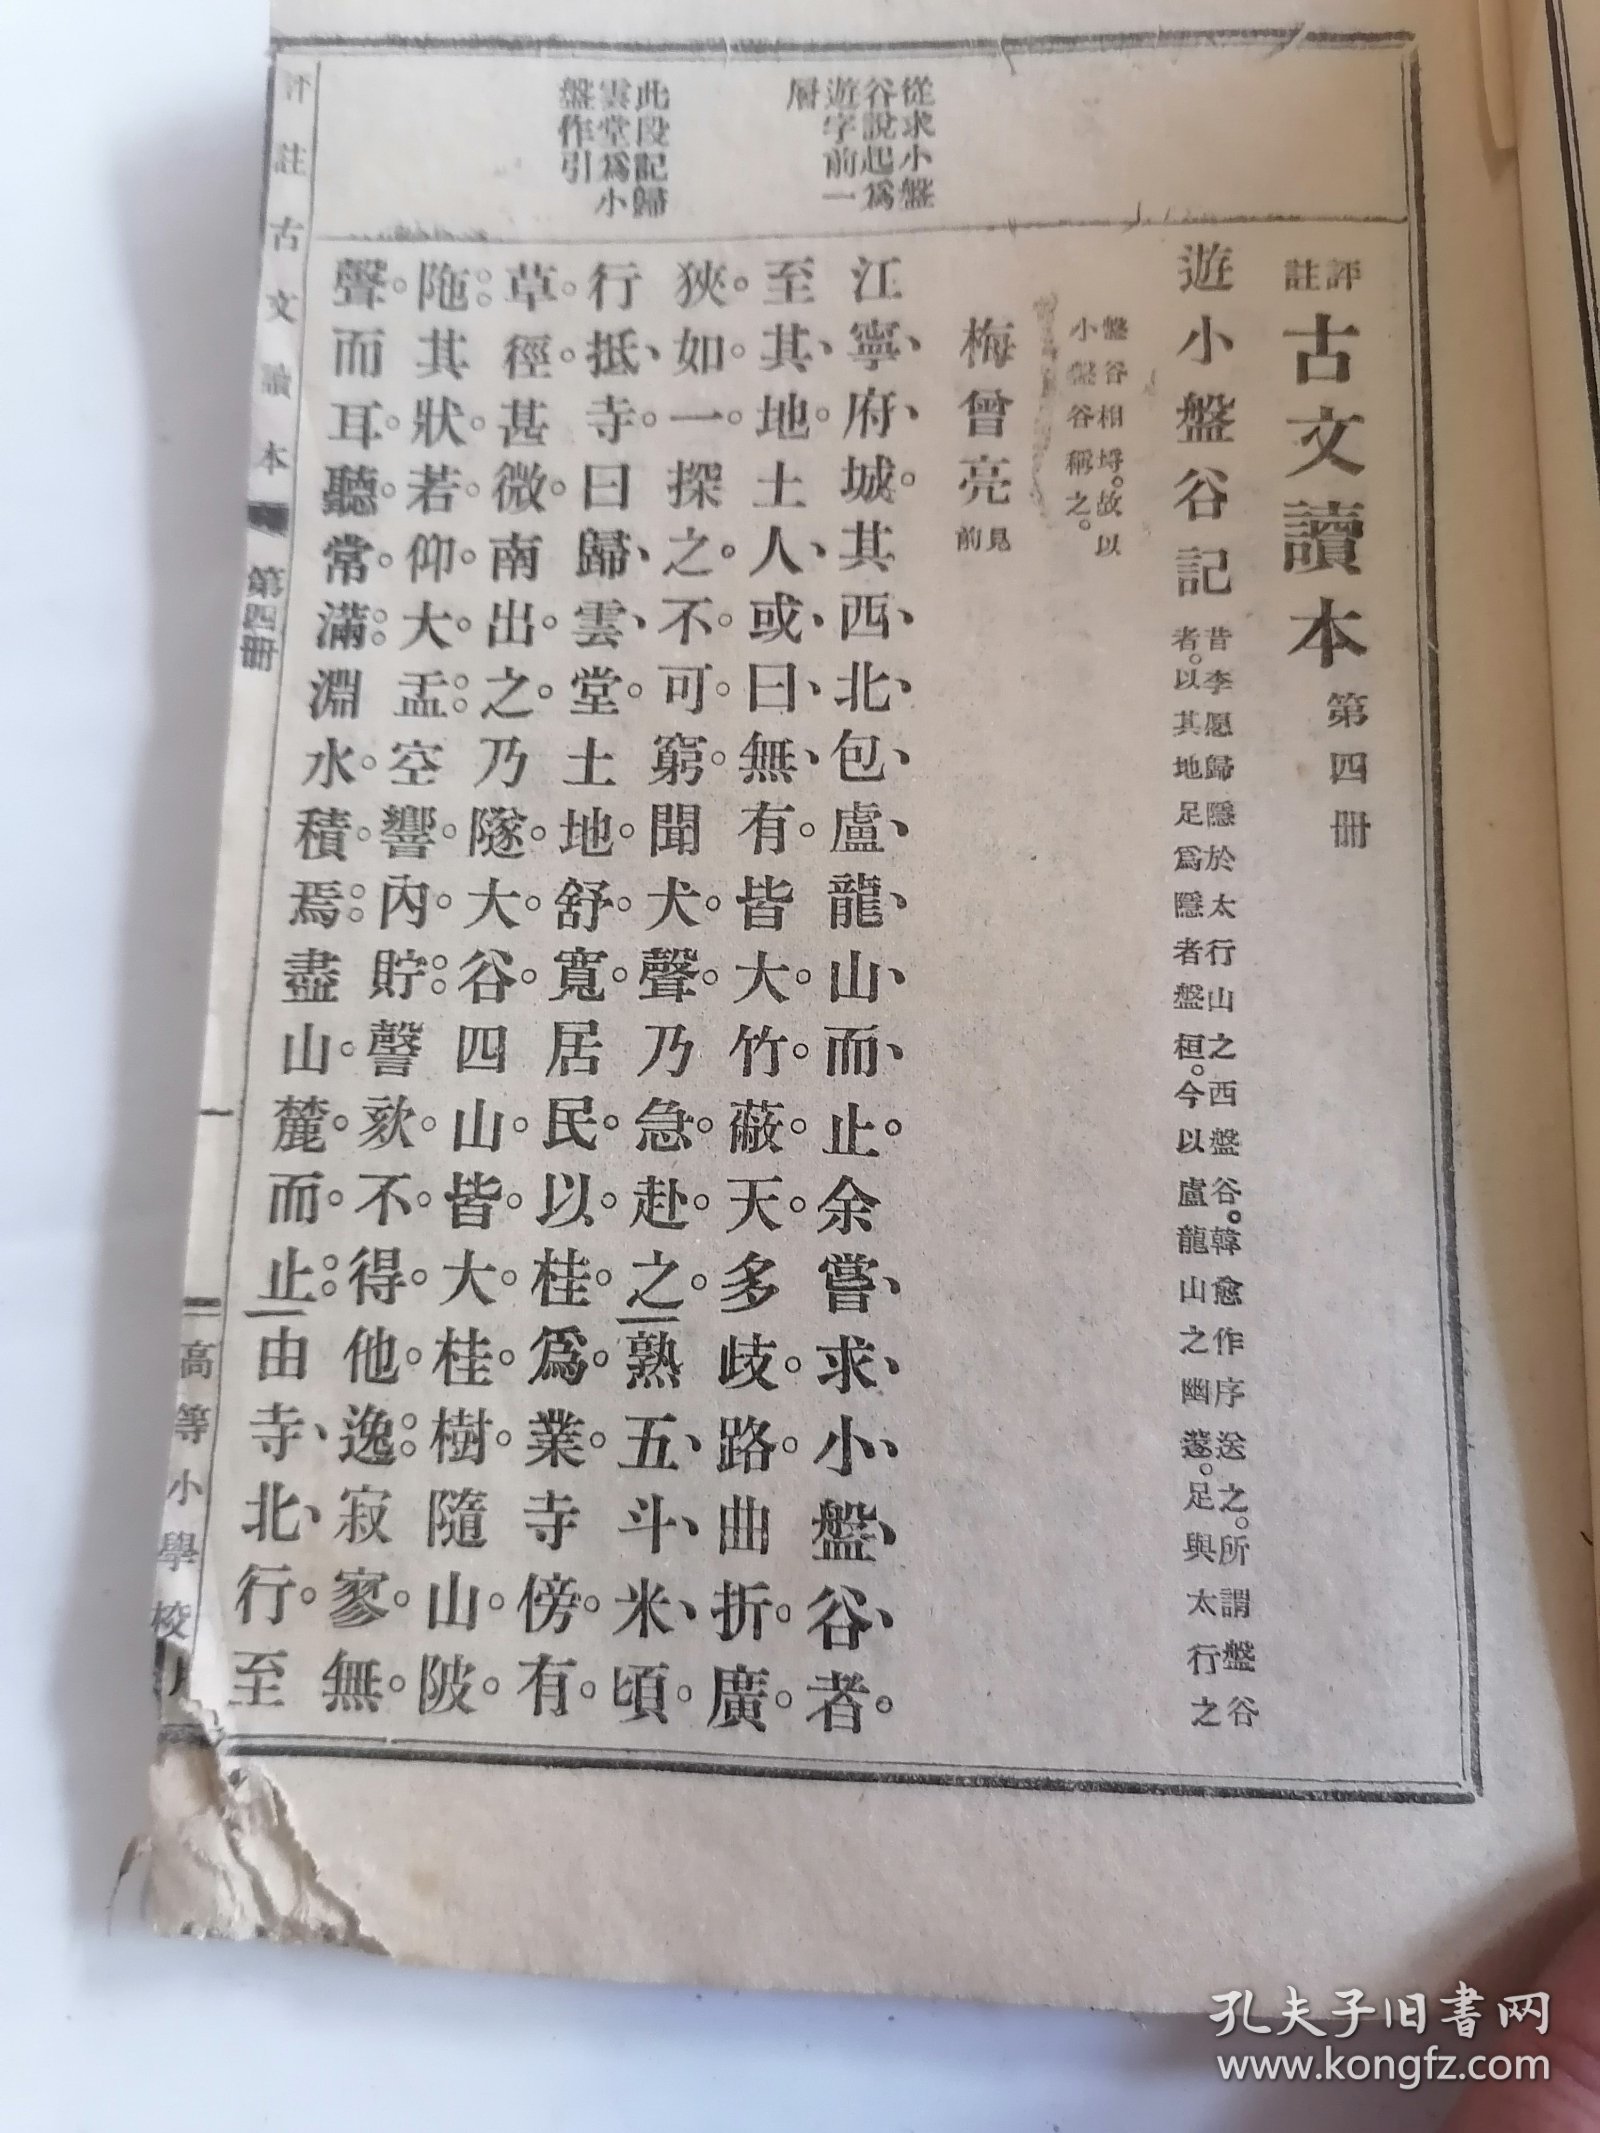 評註古文讀本第四冊
遊小盤谷記
昔李愿歸隱於太行山之西盤谷。韓愈作序送之。所謂盤谷
者。以其地足爲隱者盤桓。今以盧龍山之幽邃。足與太行之
盤谷相埒。故以
小盤谷稱之。
梅曾亮見前
江寧府城。其西北包盧龍山而止。余嘗求小盤谷者。
至其地。土人或曰無有。皆大竹蔽天。多歧路。曲折廣
狹如一。探之不可窮。聞犬聲乃急赴之。熟五斗米頃。
行抵寺。曰歸雲堂。土地舒寬。居民以桂爲業。寺傍有
草徑甚微。南出之。乃隧大谷。四山皆大桂樹。隨山陂
陁。其狀若仰大盂。空響內貯。謦欬不得他逸。寂寥無
聲。而耳聽常滿。淵水積焉。盡山麓而止。由寺北行。至
從求小盤
谷說起爲
遊字前一
層
此段記歸
雲堂爲小
盤作引
評註古文讀本 第四冊 一 高等小學校
孔夫子旧书网
www.kongfz.com